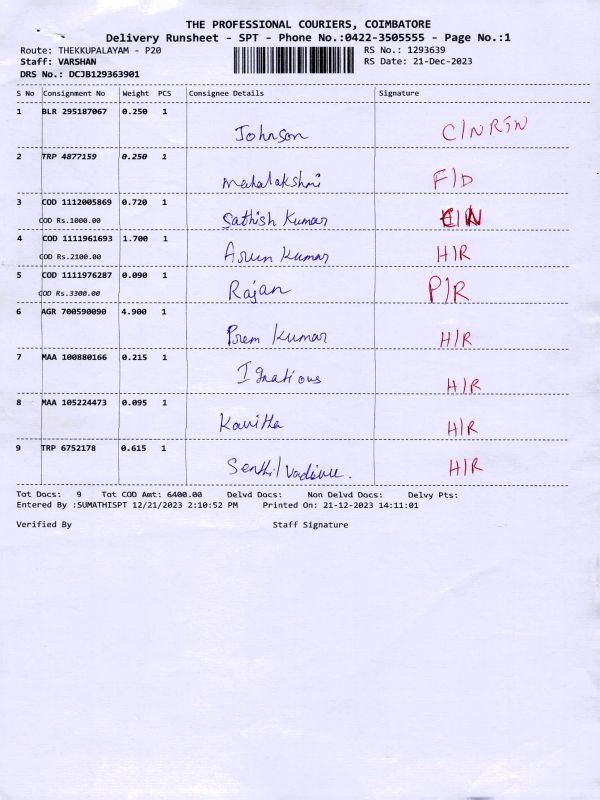 THE PROFESSIONAL COURIERS, COIMBATORE
Delivery Runsheet - SPT - Phone No.:0422-3505555 - Page No.:1
Route: THEKKUPALAYAM - P20 RS No.: 1293639
Staff: VARSHAN RS Date: 21-Dec-2023
DRS No.: DCJB129363901
S No Consignment No Weight PCS Consignee Details Signature
1 BLR 295187067 0.250 1
Johnson C/N RTN
2 TRP 4877159 0.250 1
Mahalakshmi F/D
3 COD 1112005869 0.720 1
COD Rs.1000.00 Sathish Kumar C/N
4 COD 1111961693 1.700 1
COD Rs.2100.00 Arun Kumar H/R
5 COD 1111976287 0.090 1
COD Rs.3300.00 Rajan P/R
6 AGR 700590090 4.900 1
Prem Kumar H/R
7 MAA 100880166 0.215 1
Ignatious H/R
8 MAA 105224473 0.095 1
Kavitha H/R
9 TRP 6752178 0.615 1
Senthil Vadivu. H/R
Tot Docs: 9 Tot COD Amt: 6400.00 Delvd Docs: Non Delvd Docs: Delvy Pts:
Entered By :SUMATHISPT 12/21/2023 2:10:52 PM Printed On: 21-12-2023 14:11:01
Verified By Staff Signature